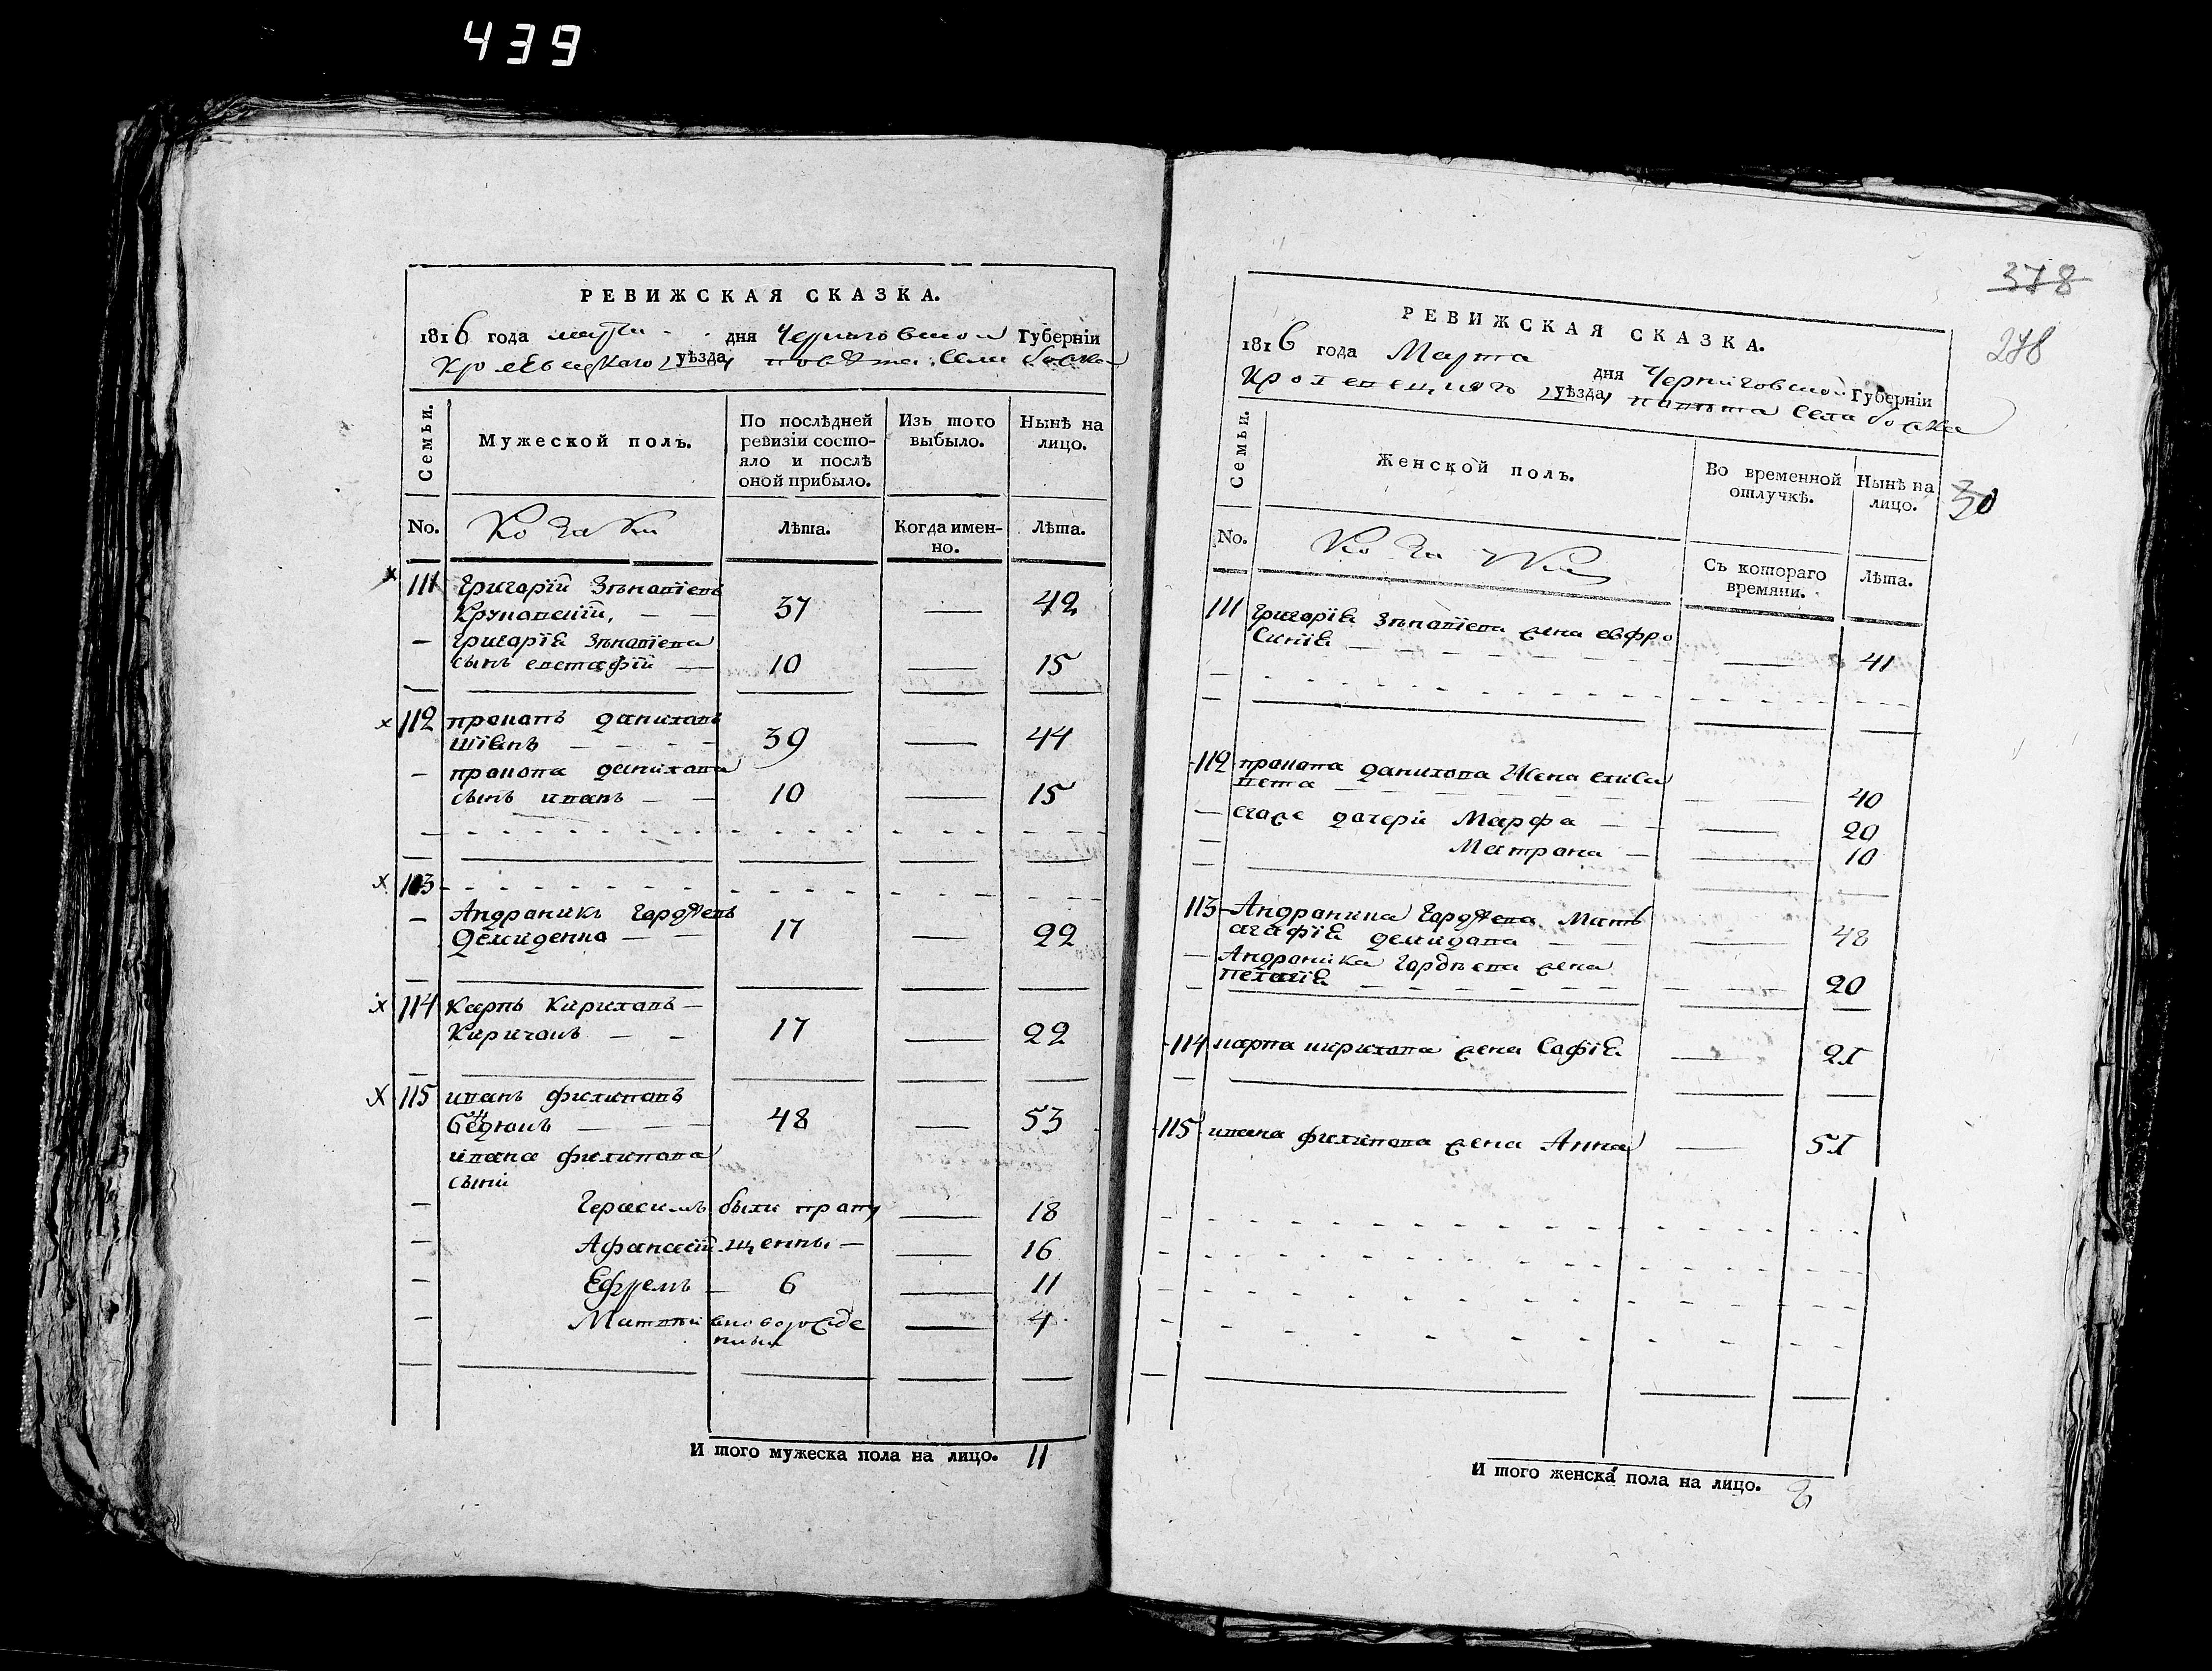 439
РЕВИЖСКАЯ СКАЗКА.
1816 года марта дня Черниговской Губерніи
Кролевецкаго уѣзда повѣта Села
Семьи.
Мужеской полъ.
По послѣдней ревизіи состояло и послѣ оной прибыло.
Изъ того выбыло.
Нынѣ на лицо.
No.
Козаки
Лѣта.
Когда именно.
Лѣта.
x 111 Григорій Зѣновіевъ
Круповскій, — — 37 — 42
— Григорія Зѣновіева
сынъ евстафій — 10 — 15
x 112 прокопъ даниловъ
— — 39 — 44
— прокопа данилова
сынъ иванъ — — 10 — 15
x 113
— Андроникъ Гордѣевъ
Демиденко — — 17 — 22
x 114 Карпъ Кириловъ —
— — 17 — 22
x 115 иванъ филиповъ
— — 48 — 53
ивана филипова
сыни
— Герасимъ были пропу — 18
— Афанасій щенны — — 16
— Ефремъ — 6 — 11
— Матвѣй вноворожде — 4
нный
И того мужеска пола на лицо. 11
378
278
РЕВИЖСКАЯ СКАЗКА.
1816 года Марта дня Черниговской Губерніи
Кролевецкого уѣзда повѣта Села
30
Семьи.
Женской полъ.
Во временной отлучкѣ.
Нынѣ на лицо.
No.
Козачки
Съ котораго времяни.
Лѣта.
111 Григорія Зѣновіева жена евфро
синія — — — 41
112 прокопа данилова Жена елиса
вета — — — 40
— егоже дочери Марфа — — 20
— Матрона — — 10
113 Андроника Гордѣева Мать
агафія демидова — — 48
— Андроника Гордѣева жена
пелагія — — — 20
114 карпа кирилова жена Софія — 21
115 ивана филипова жена Анна — 51
И того женска пола на лицо. 8